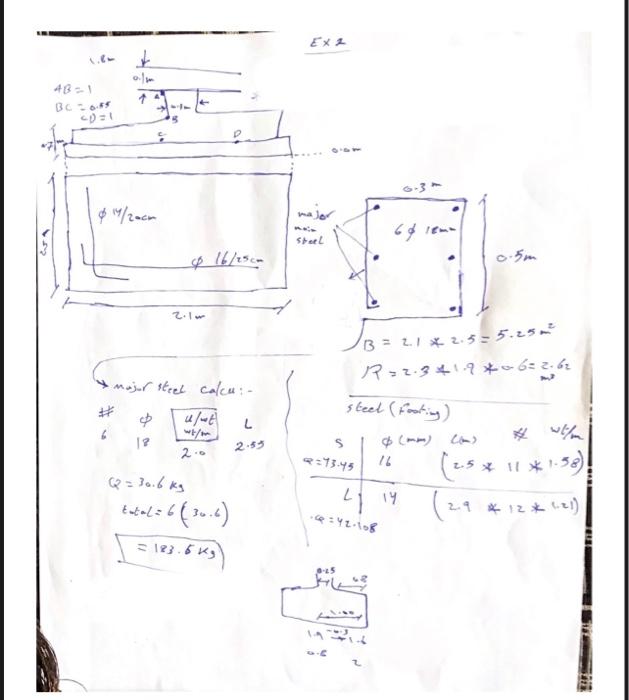 Ex 2
1.8m
0.1m
AB = 1
BC = 0.55
CD = 1
A
B
C
D
0.0m
0.3m
major
main
steel
6 ϕ 18mm
0.5m
ϕ 14/20cm
ϕ 16/25cm
2.1m
B = 2.1 * 2.5 = 5.25 m²
R = 2.3 * 1.9 * 0.6 = 2.62 m³
major steel calcu:-
# ϕ u/wt wt/m L
6 18 2.0 2.55
Q = 30.6 kg
total = 6 (30.6)
= 183.6 kg
steel (footing)
S ϕ (mm) L(m) # wt/m
Q = 43.45 16 (2.5 * 11 * 1.58)
L 14 (2.9 * 12 * 1.21)
Q = 42.108
0.25
0.8
2